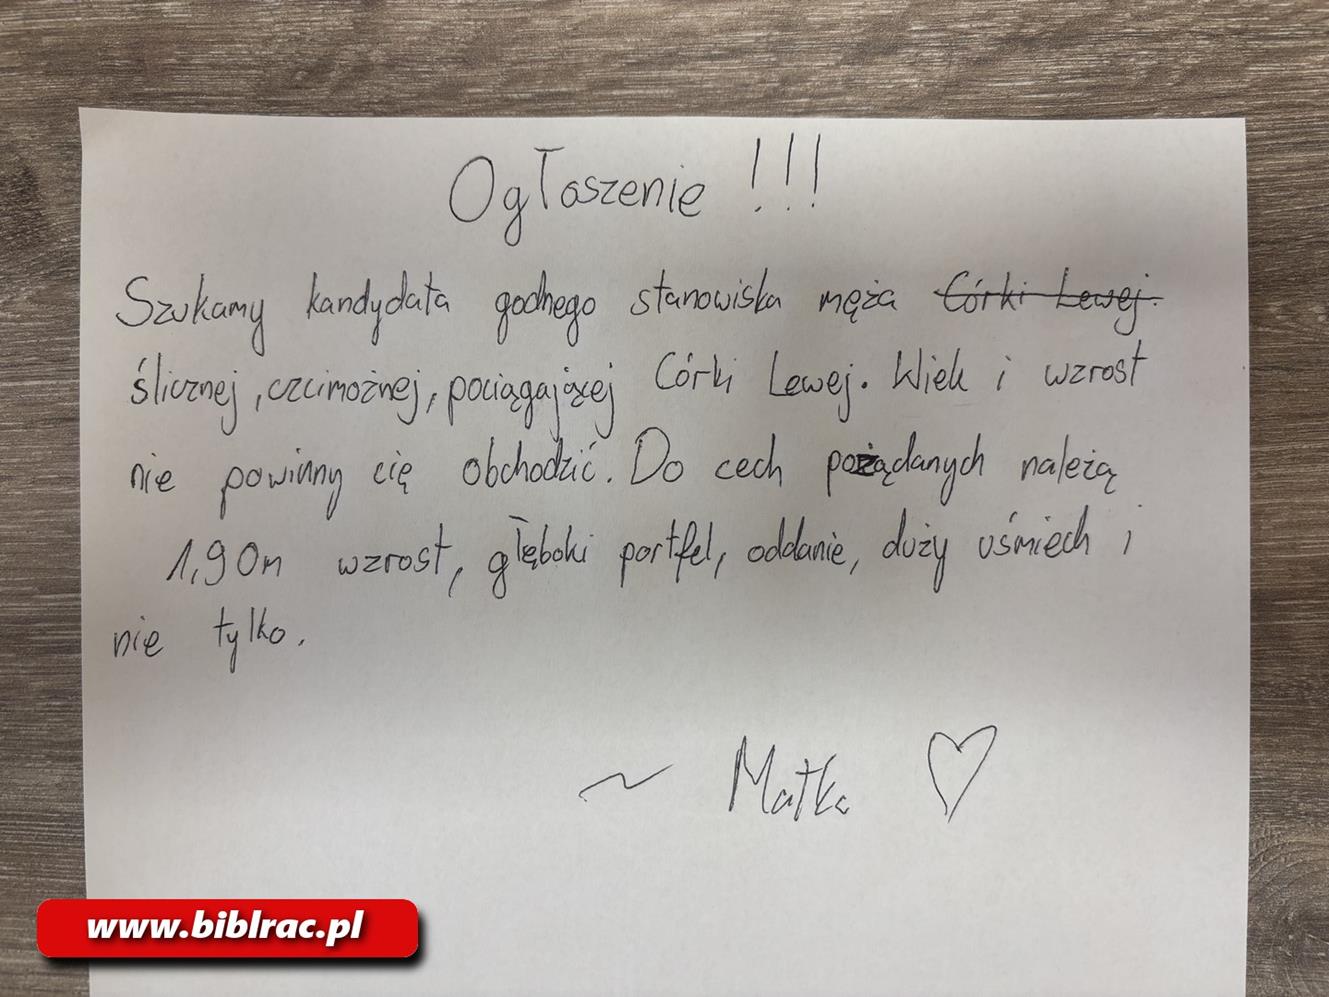 Ogłoszenie !!!
Szukamy kandydata godnego stanowiska męża Córki Lewej.
ślicznej, czcimożnej, pociągającej Córki Lewej. Wiek i wzrost
nie powinny cię obchodzić. Do cech pożądanych należą
1,90m wzrost, głęboki portfel, oddanie, duży uśmiech i
nie tylko.
~ Matka ♡
www.biblrac.pl